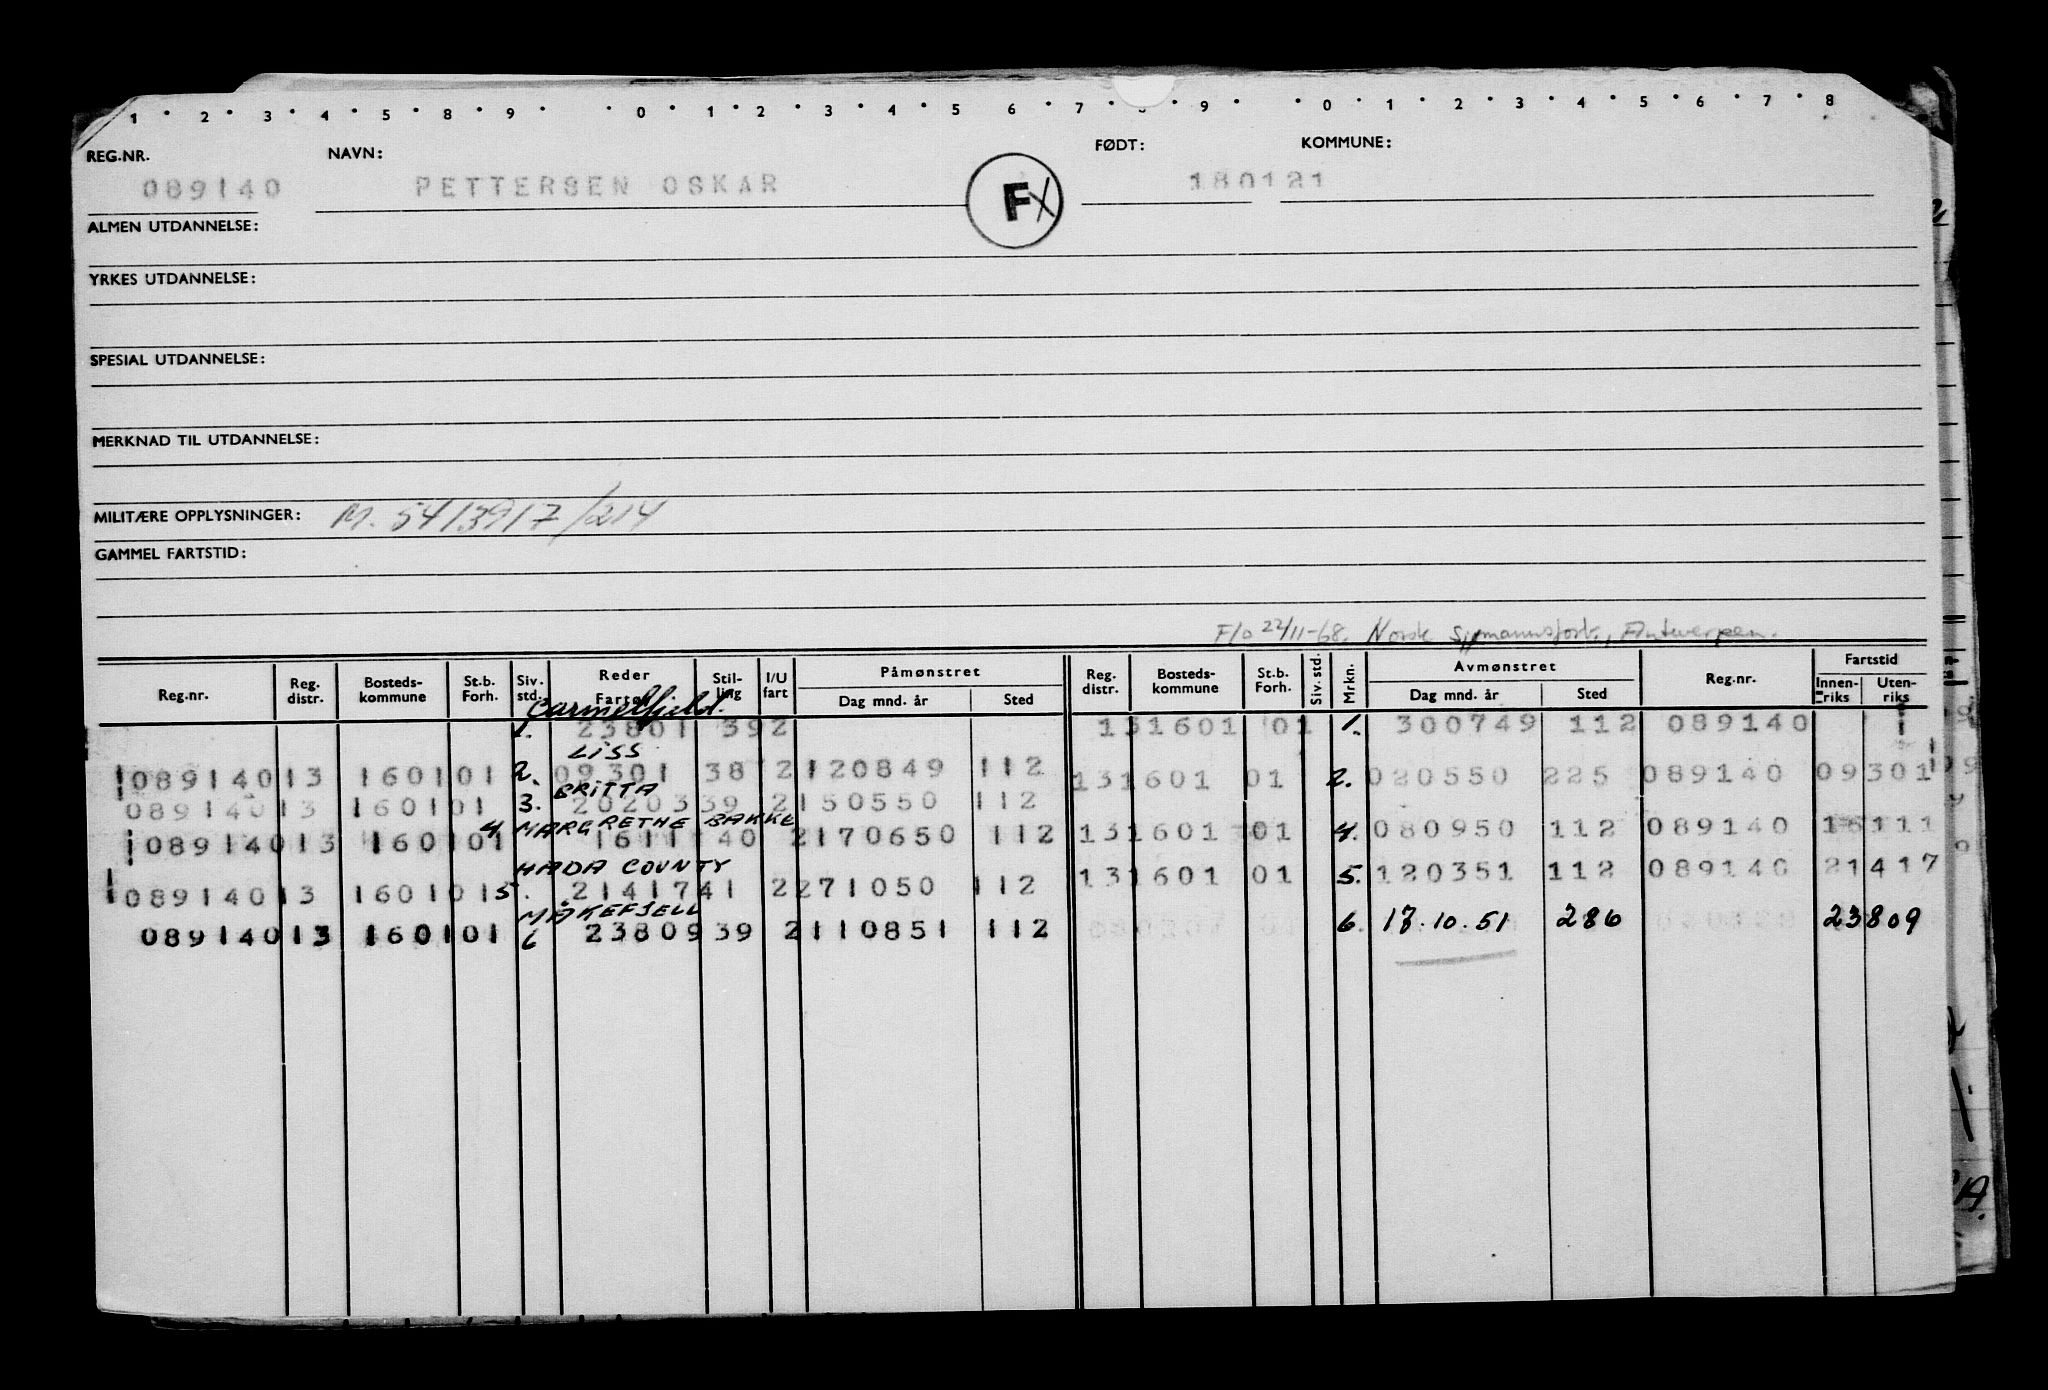 1 · 2 · 3 · 4 · 5 · 8 · 9 · · 0 · 1 · 2 · 3 · 4 · 5 · 6 · 7 · · 9 · · 0 · 1 · 2 · 3 · 4 · 5 · 6 · 7 · 8
REG.NR. NAVN: FØDT: KOMMUNE:
089140 PETTERSEN OSKAR FX 180121
ALMEN UTDANNELSE:
YRKES UTDANNELSE:
SPESIAL UTDANNELSE:
MERKNAD TIL UTDANNELSE:
MILITÆRE OPPLYSNINGER: M. 5413917/214
GAMMEL FARTSTID:
F/o 22/11-68. Norsk Antwerpen.
Reg.nr. Reg. distr. Bosteds-kommune St.b. Forh. Siv. std. Reder Fartøy Stil-ling I/U fart Påmønstret Dag mnd. år Sted Reg. distr. Bosteds-kommune St.b. Forh. Siv. std. Mrkn. Avmønstret Dag mnd. år Sted Reg.nr. Fartstid Innen-riks Uten-riks
1. 23801 39 2 131601 01 1. 300749 112 089140
LISS
089140 13 1601 01 2. 09301 38 2 120849 112 131601 01 2. 020550 225 089140 09301
BRITTA
089140 13 1601 01 3. 20203 39 2 150550 112
MARGRETHE BAKKE
089140 13 1601 01 4 16111 40 2 170650 112 131601 01 4. 080950 112 089140 16111
HADA COUNTY
089140 13 1601 01 5. 21417 41 2 271050 112 131601 01 5. 120351 112 089140 21417
MÅKEFJELL
089140 13 1601 01 6 23809 39 2 110851 112 6. 17.10.51 286 23809